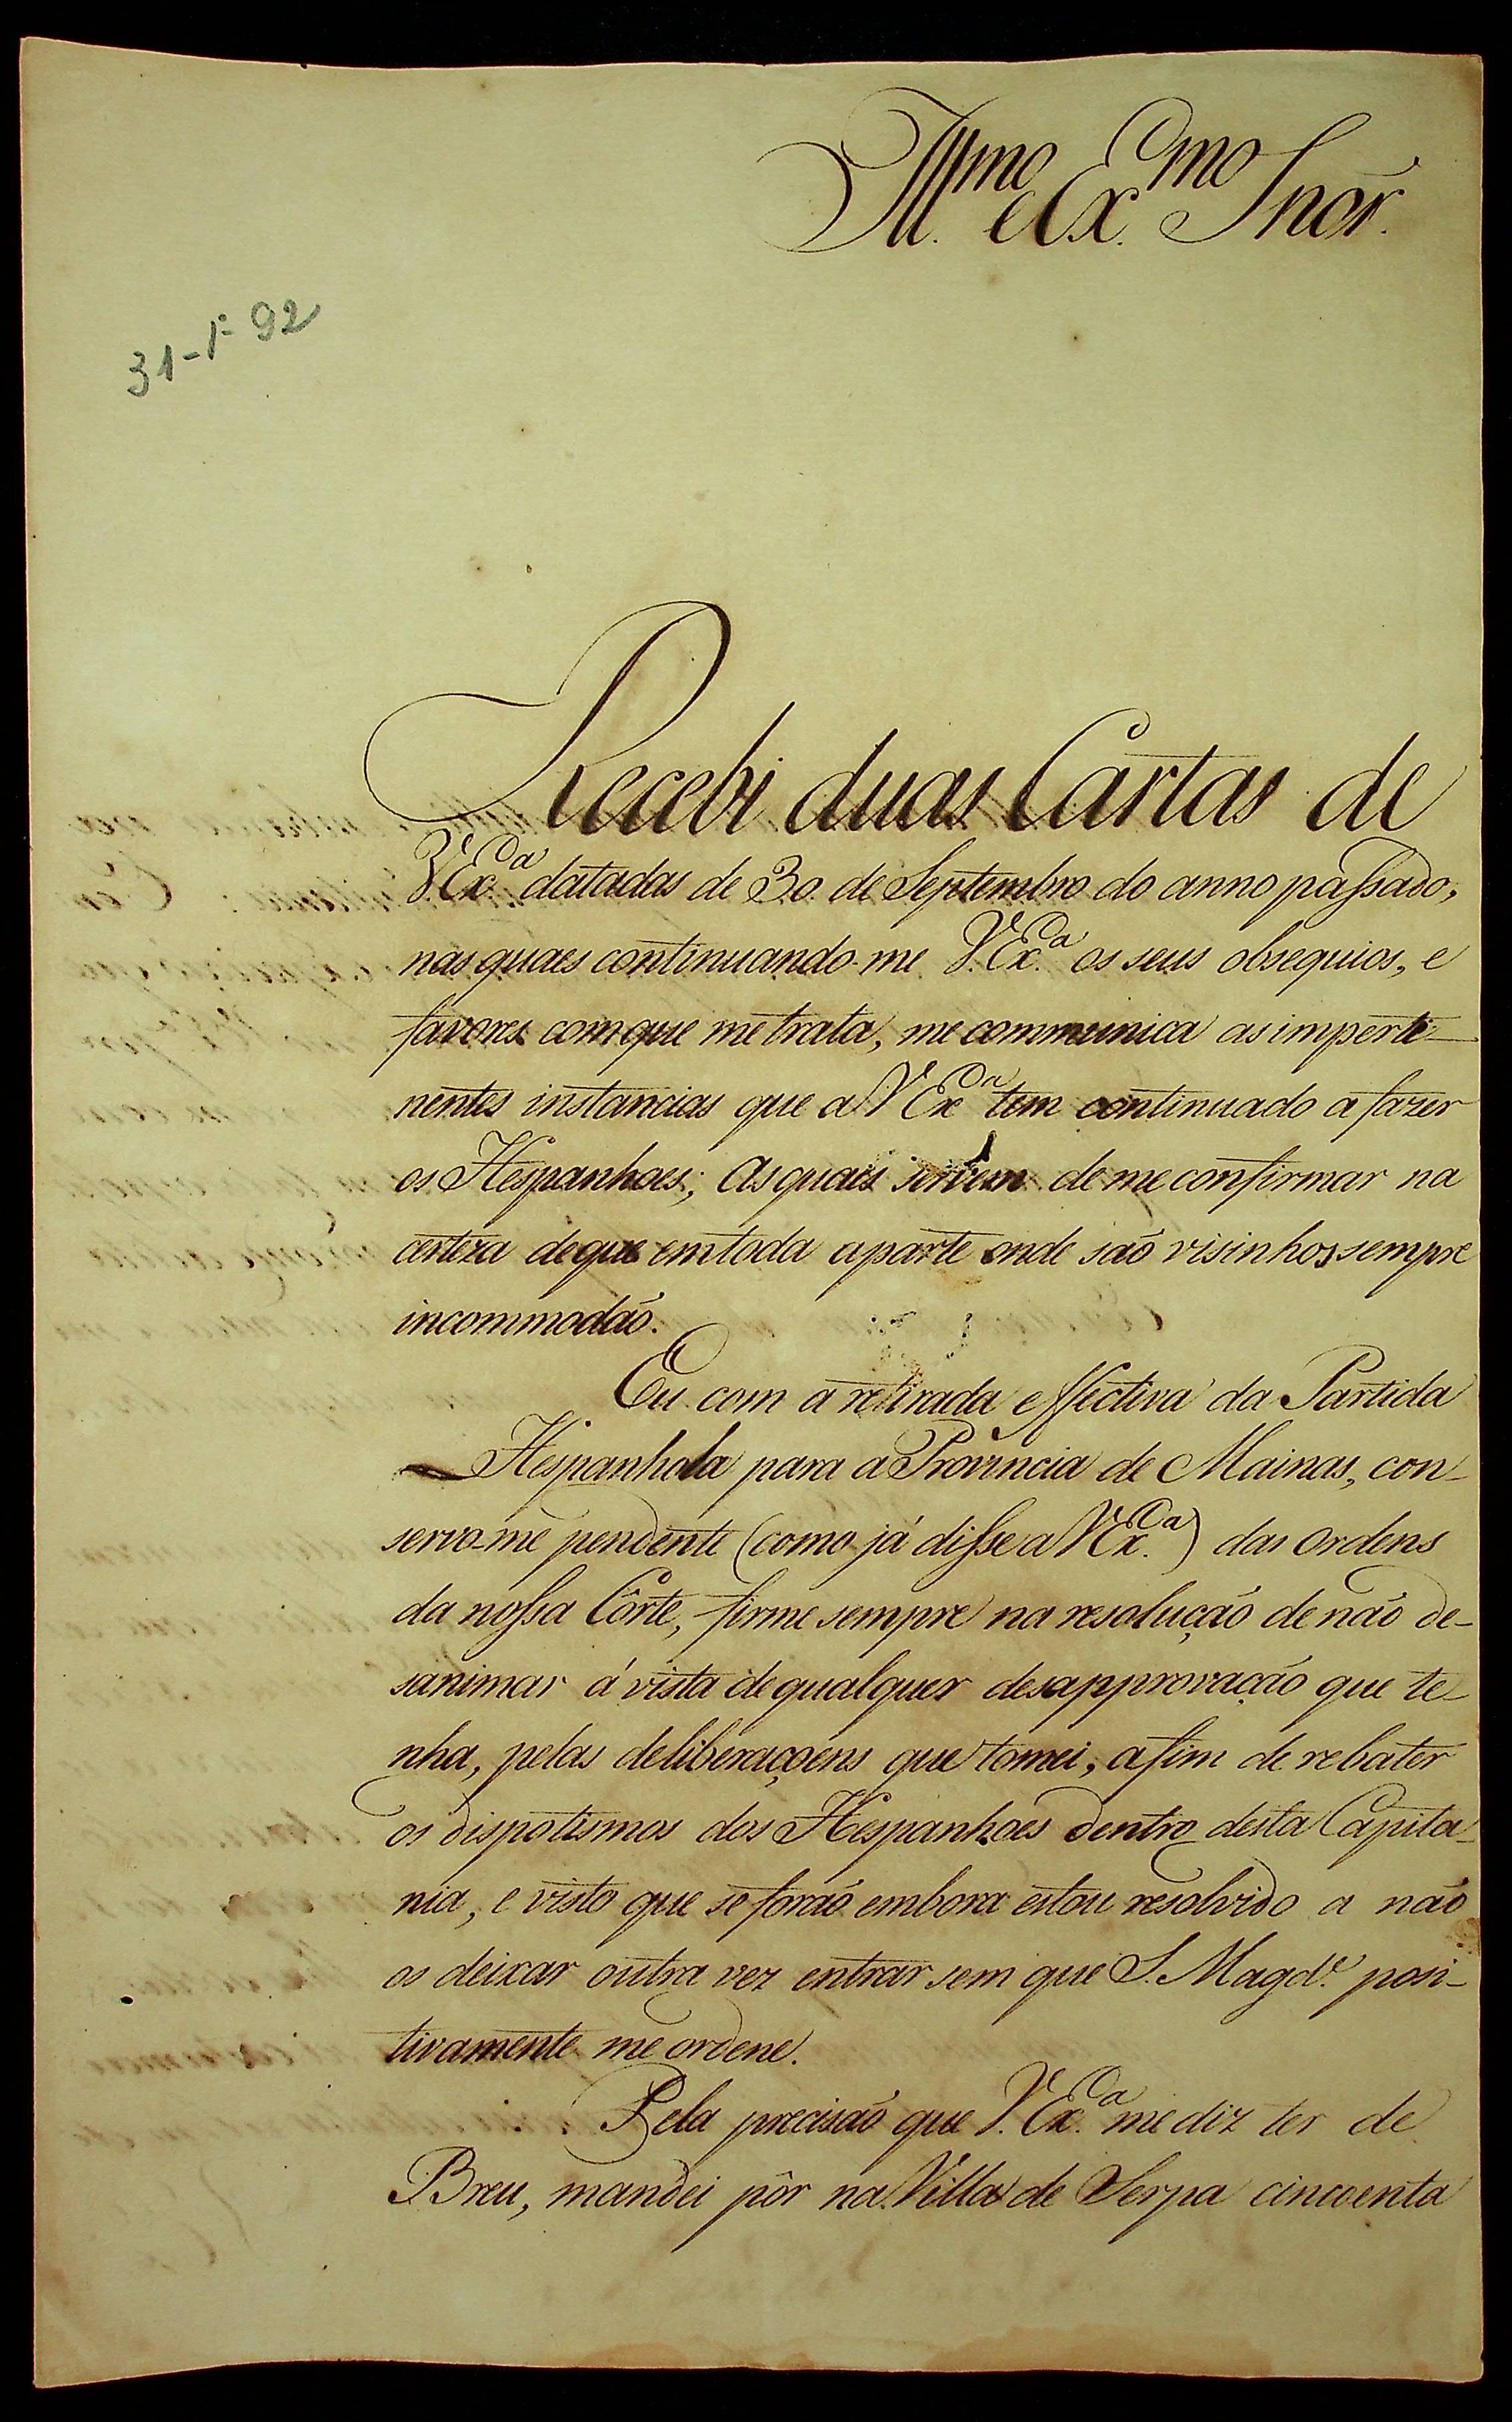 Ill.mo e Ex.mo Snor.
31-1º 92
Recebi duas Cartas de
V.Ex.ca datadas de 30. de Septembro do anno passado,
nas quaes continuando-me V.Ex.ca os seus obsequios, e
favores com que me trata, me communica as imperti-
nentes instancias que a V Ex.ca tem continuado a fazer
os Hespanhoes; As quaes servem de me confirmar na
certeza de que em toda a parte onde são visinhos sempre
incommodão.
Eu com a retirada effectiva da Partida
Hespanhola para a Provincia de Mainas, con-
servo-me pendente (como já disse a V Ex.ca) das ordens
da nossa Côrte, firme sempre na resolução de não de-
sanimar á vista de qualquer desapprovação que te-
nha, pelas deliberaçoens que tomei, afim de rebater
os dispotismos dos Hespanhoes dentro desta Capita-
nia, e visto que se forão embora estou resolvido a não
os deixar outra vez entrar sem que S. Magd.e posi-
tivamente me ordene.
Pela precisão que V. Ex.ca me diz ter de
Breu, mandei pôr na Villa de Serpa cincoenta